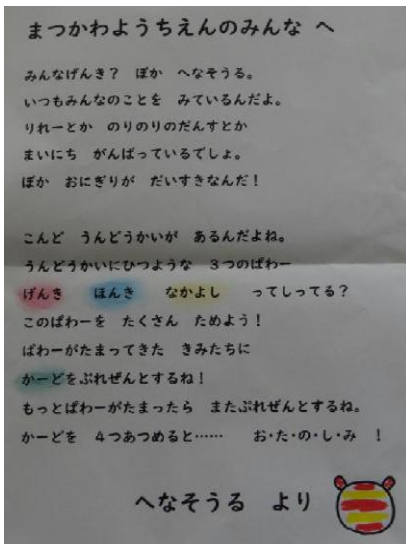 まつかわようちえんのみんな へ
みんなげんき？ ぼか へなそうる。
いつもみんなのことを みているんだよ。
りれーとか のりのりのだんすとか
まいにち がんばっているでしょ。
ぼか おにぎりが だいすきなんだ！
こんど うんどうかいが あるんだよね。
うんどうかいにひつような ３つのぱわー
げんき ほんき なかよし ってしってる？
このぱわーを たくさん ためよう！
ぱわーがたまってきた きみたちに
かーどをぷれぜんとするね！
もっとぱわーがたまったら またぷれぜんとするね。
かーどを ４つあつめると…… お・た・の・し・み ！
へなそうる より